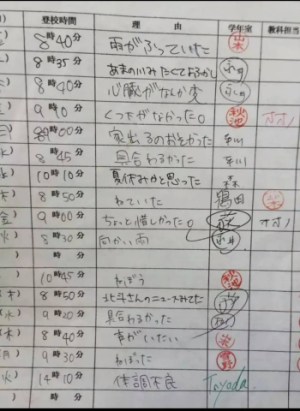 登校時間 理由 学年室 教科担当
8時40分 雨がふっていた 山本
8時35分 あまの川みたくておろかし
8時40分 心臓がなんか変
9時10分 くつがなかった。 オオノ
9時00分 家出るのおそかった 平川
8時45分 具合わるかった 平川
10時10分 夏休みかと思った 森
8時50分 ねていた 鶴田
9時00分 ちょっと惜しかった。 森 オオノ
8時30分 向かい雨
時 分
10時45分 ねぼう
8時50分 北斗さんのニュースみてた
9時40分 具合わるかった
8時40分 声がでない
9時30分 ねぼった
14時10分 体調不良 Toyoda